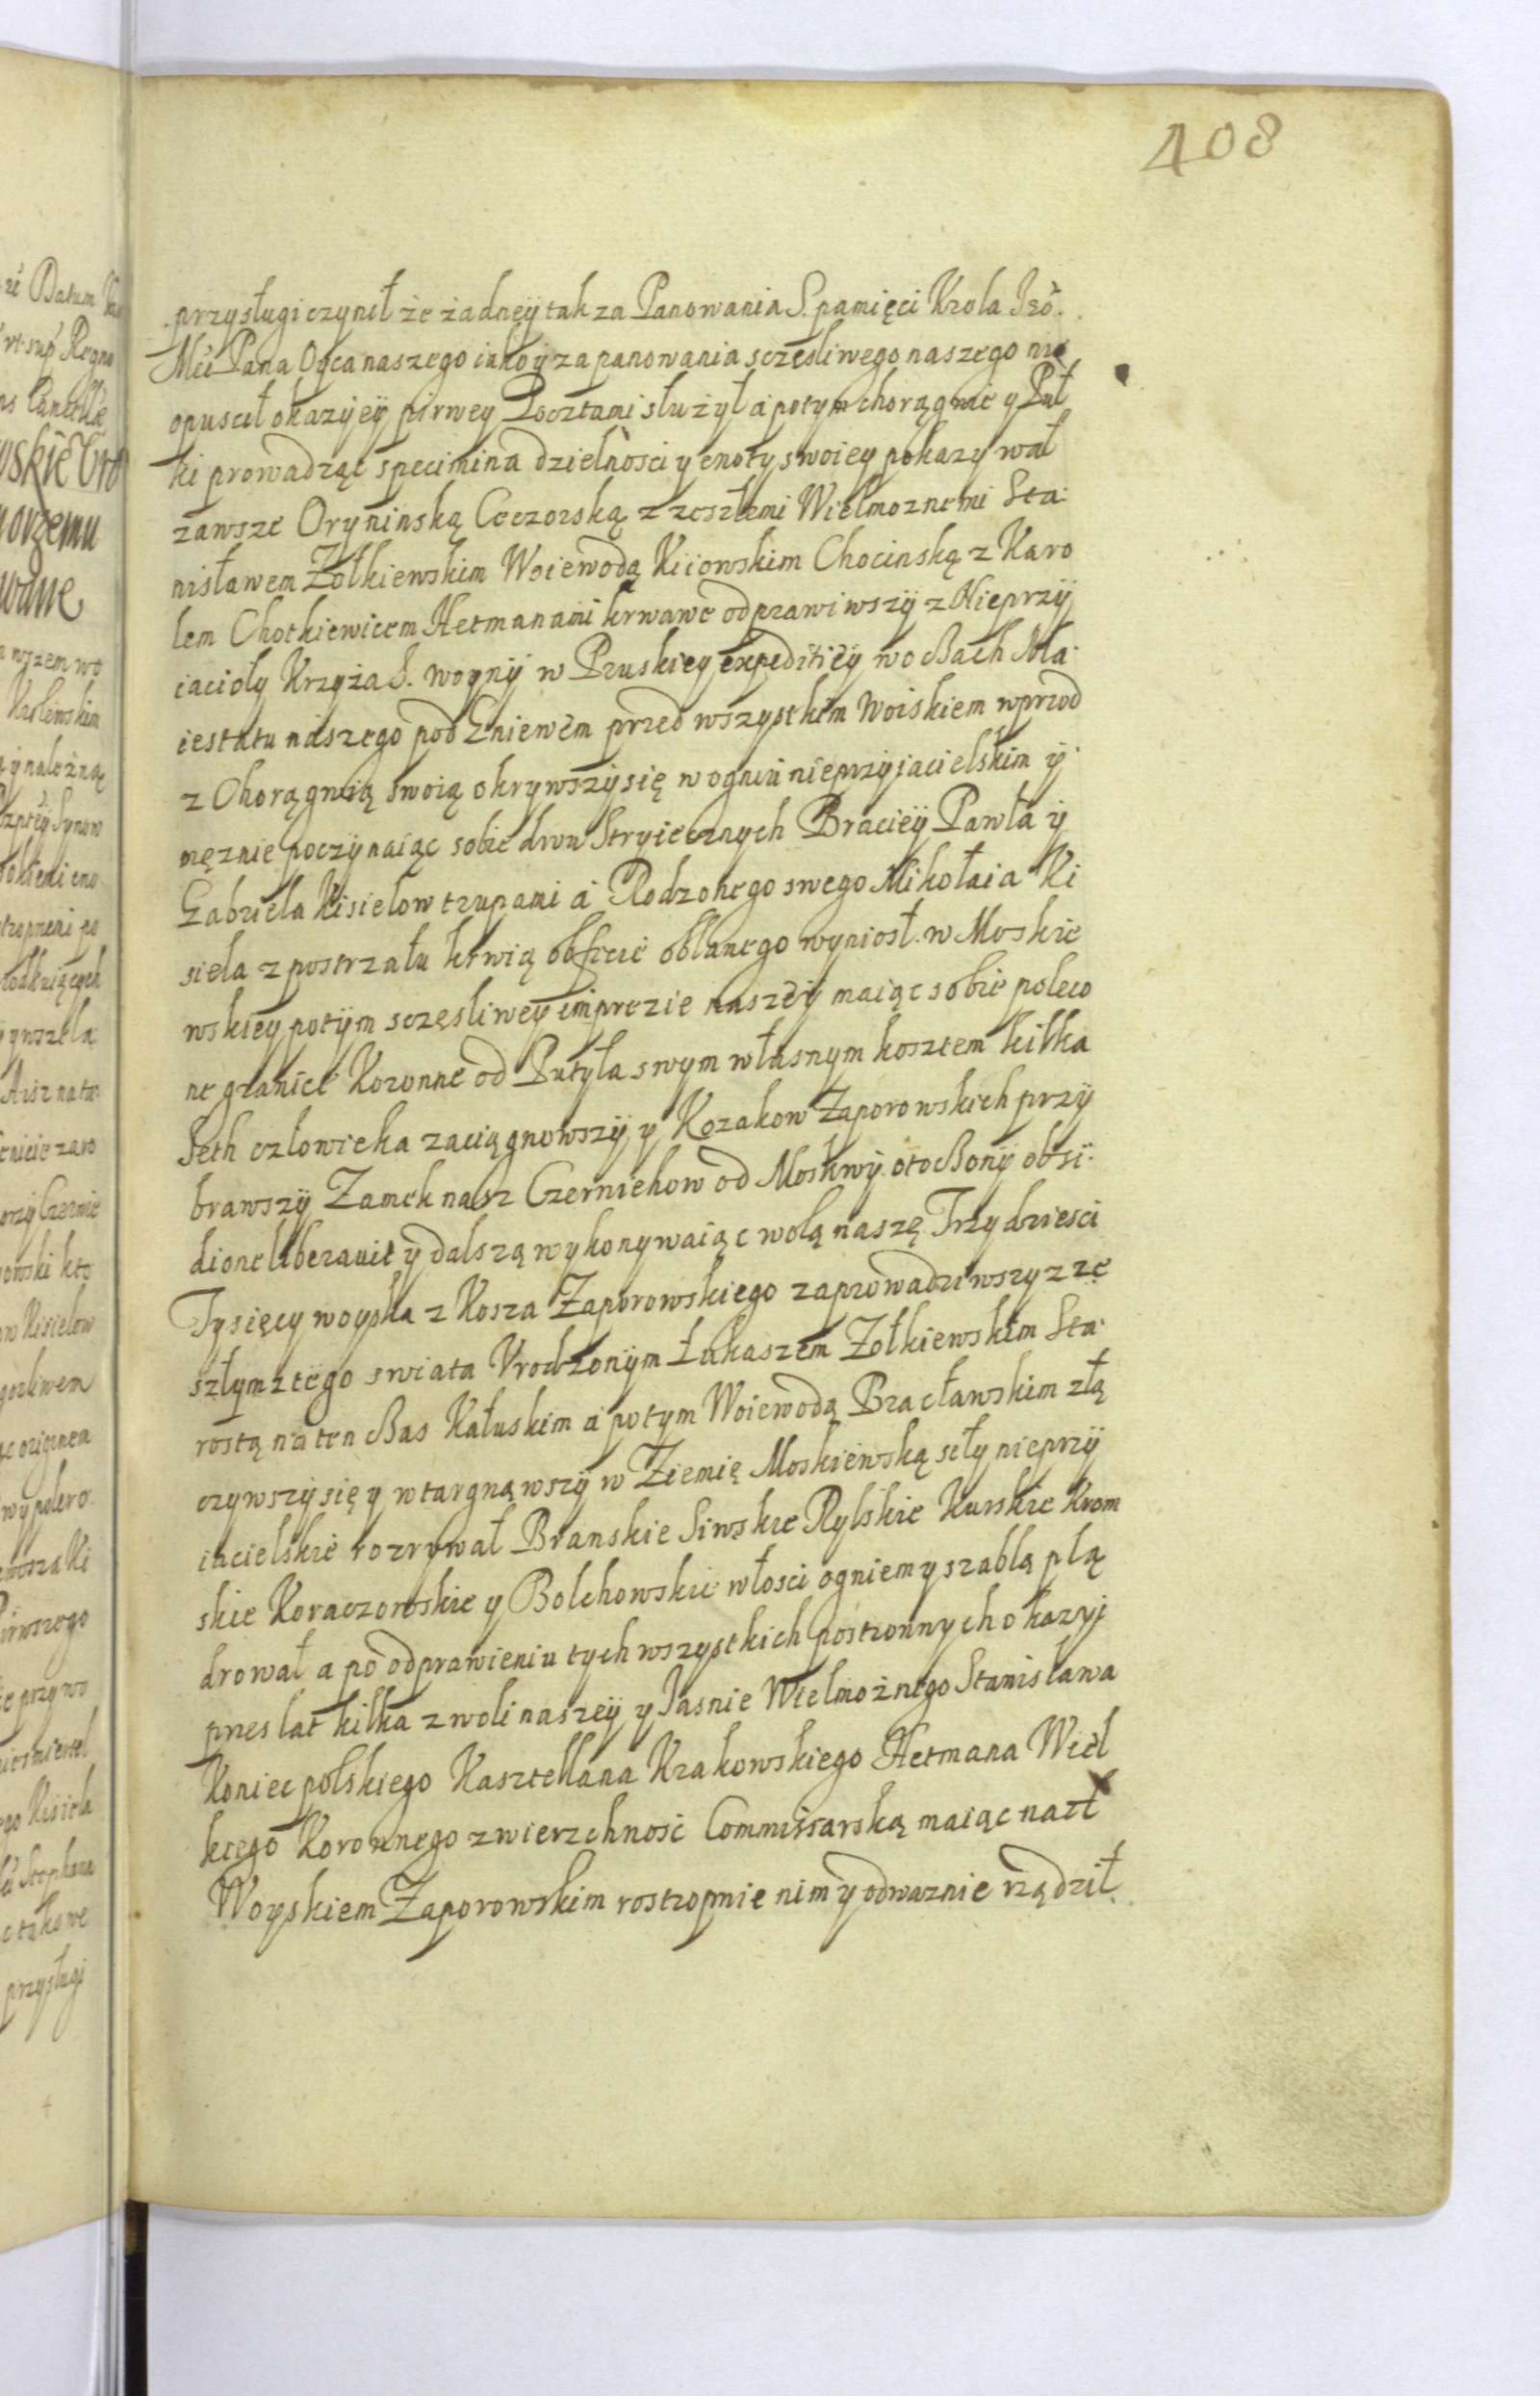 408
przysługi czynił że żadneÿ tak za Panowania S. pamięci Krola Jeo.
Mći Pana Oyca naszego iako ÿ za panowania sczesliwego naszego nie
opuscił okazÿeÿ pirwey Pocztami służył a potym chorągwie y Puł
ki prowadząc specimina dzielnosci y cnoty swoiey pokazywał
zawsze Oryninską Ceczorską z zeszłemi Wielmoznemi Sta:
nisławem Zołkiewskim Woiewodą Kiiowskim Chocinską z Karo
lem Chotkiewicem Hetmanami krwawe odprawiwszÿ z Nieprzÿ
iacioły Krzyża S. woynÿ w Pruskiey expeditieÿ w oczach Ma:
iestatu naszego pod Gniewem przed wszystkim Woiskiem wprzod
z Chorągwią swoią okrywszÿ się w ogniu nieprzyjacielskim ÿ
męznie poczÿnaiąc sobie dwu Stryiecznych Bracieÿ Pawła ÿ
Gabriela Kisielow trupami a Rodzonego swego Mikołaia Ki
siela z postrzału krwią obficie oblanego wyniosł. w Moskie
wskieÿ potÿm sczęsliweÿ imprezie naszeÿ maiąc sobie poleco
ne granice Koronne od Putyła swym własnym kosztem kilka
Seth człowieka zaciągnowszÿ y Kozakow Zaporowskich przÿ
brawszÿ Zamek nasz Czerniehow od Moskwÿ otoczonÿ obsi:
dione liberavit ÿ dalszą wykonywaiąc wolą naszę Trzydziesci
Tysięcy woyska z Kosza Zaporowskiego zaprowadziwszy z ze
szłym z tego swiata Vrodzonÿm Łukaszem Zołkiewskim Sta:
rostą na ten czas Kałuskim a potym Woiewodą Bracławskim złą
czywszÿ się y wtargnąwszÿ w Ziemię Moskiewską siły nieprzÿ
iacielskie rozrywał Branskie Siwskie Rylskie Kurskie Krom
skie Koraczowskie y Bolchowskie włosci ogniem y szablą plą
drował a po odprawieniu tych wszystkich postronnych okazyj
przes lat kilka z woli naszeÿ y Jasnie Wielmożnego Stanisława
Koniecpolskiego Kasztellana Krakowskiego Hetmana Wiel
kiego Koronnego zwierzchnosć Commissarską maiąc nad
Woyskiem Zaporowskim rostropnie nim ÿ odwaznie rządził